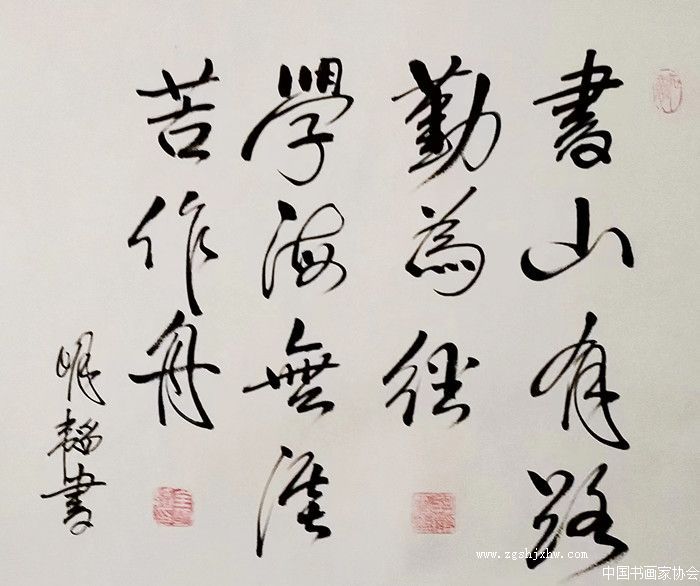 書山有路
勤為徑
學海無涯
苦作舟
明韜書
www.zgshjxhw.com
中国书画家协会